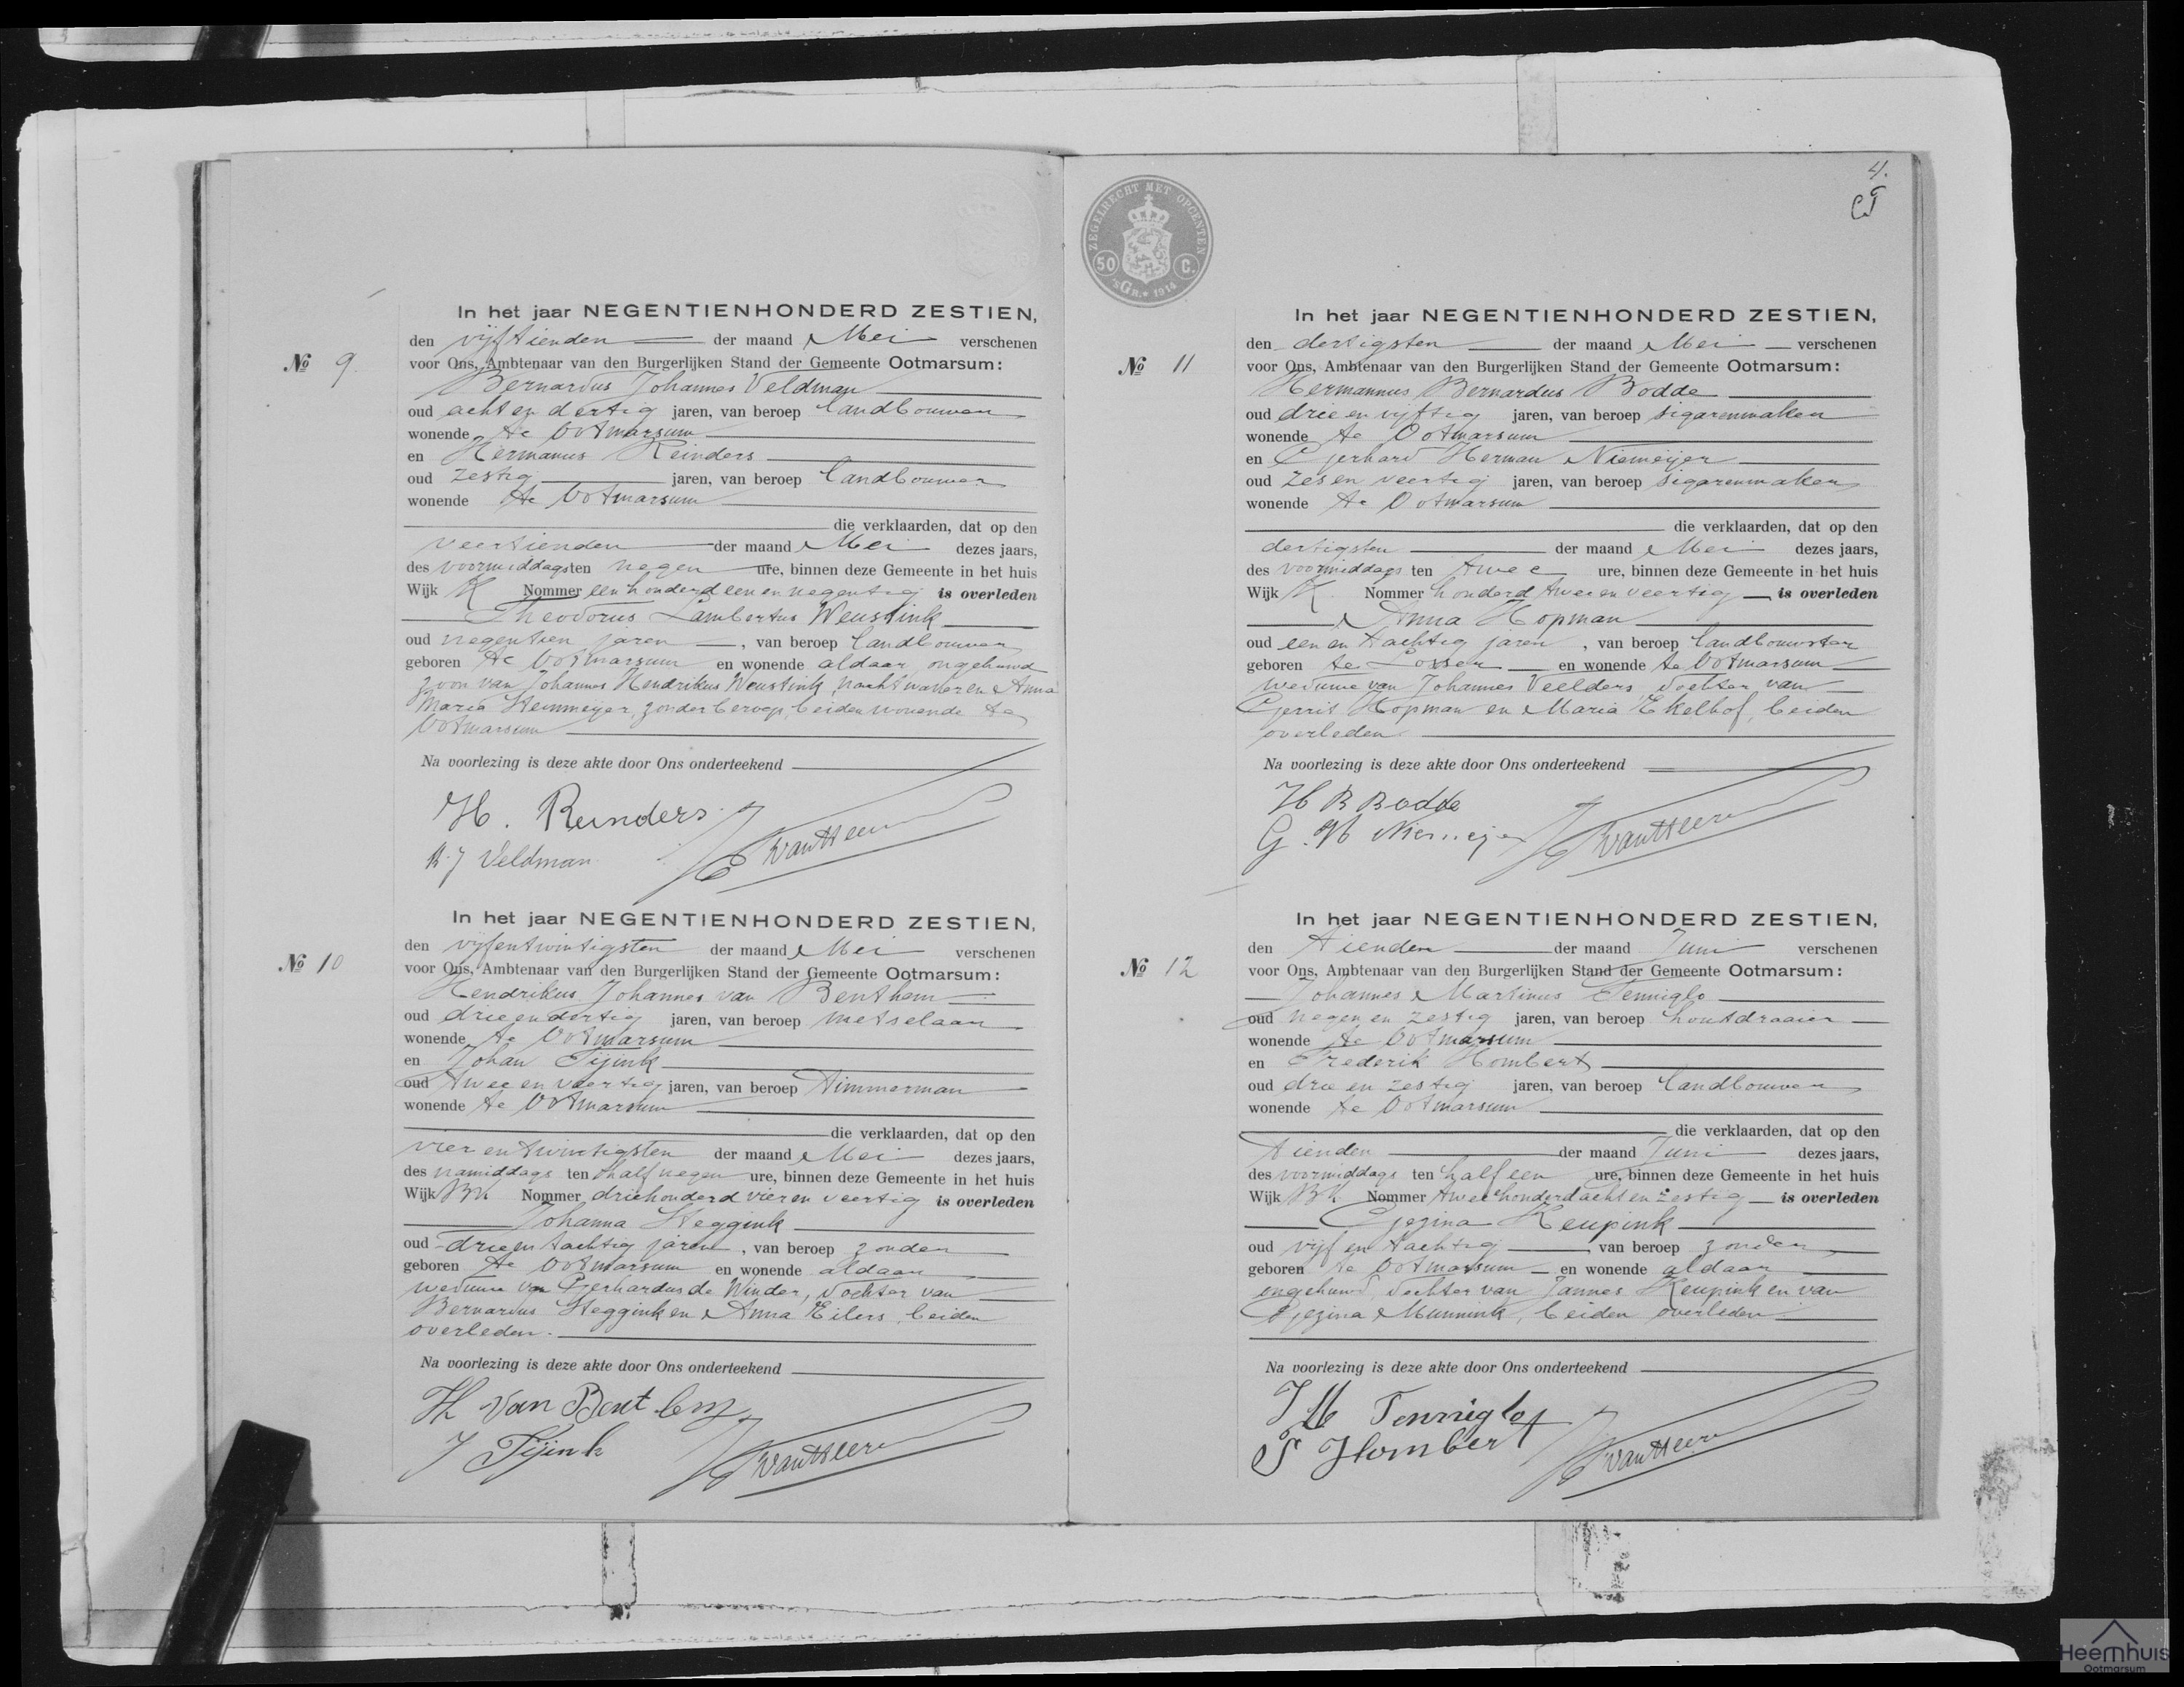 4.
ZEGELRECHT MET OPCENTEN
50 C.
'SGR. 1914
In het jaar NEGENTIENHONDERD ZESTIEN,
den vijftienden der maand Mei verschenen
No 9. voor Ons, Ambtenaar van den Burgerlijken Stand der Gemeente Ootmarsum:
Bernardus Johannes Veldman
oud acht en dertig jaren, van beroep landbouwer
wonende te Ootmarsum
en Hermanus Reinders
oud zestig jaren, van beroep landbouwer
wonende te Ootmarsum
die verklaarden, dat op den
veertienden der maand Mei dezes jaars,
des voormiddags ten negen ure, binnen deze Gemeente in het huis
Wijk K Nommer een honderd een en negentig is overleden
Theodorus Lambertus Weustink
oud negentien jaren, van beroep landbouwer
geboren te Ootmarsum en wonende aldaar, ongehuwd
zoon van Johannes Hendrikus Weustink, nachtwaker en Anna
Maria Stemmeyer, zonder beroep, beiden wonende te
Ootmarsum
Na voorlezing is deze akte door Ons onderteekend
H. Reinders
B. J Veldman
In het jaar NEGENTIENHONDERD ZESTIEN,
den vijfentwintigsten der maand Mei verschenen
No 10 voor Ons, Ambtenaar van den Burgerlijken Stand der Gemeente Ootmarsum:
Hendrikus Johannes van Benthem
oud drie en dertig jaren, van beroep metselaar
wonende te Ootmarsum
en Johan Tijink
oud twee en veertig jaren, van beroep timmerman
wonende te Ootmarsum
die verklaarden, dat op den
vier en twintigsten der maand Mei dezes jaars,
des namiddags ten half negen ure, binnen deze Gemeente in het huis
Wijk BK Nommer driehonderd vier en veertig is overleden
Johanna Steggink
oud drie en tachtig jaren, van beroep zonder
geboren te Ootmarsum en wonende aldaar
weduwe van Gerhardus de Winder, dochter van
Bernardus Steggink en Anna Eilers, beiden
overleden.
Na voorlezing is deze akte door Ons onderteekend
H van Benthem
J Tijink
In het jaar NEGENTIENHONDERD ZESTIEN,
den dertigsten der maand Mei verschenen
No 11 voor Ons, Ambtenaar van den Burgerlijken Stand der Gemeente Ootmarsum:
Hermannus Bernardus Bodde
oud drie en vyftig jaren, van beroep sigarenmaker
wonende te Ootmarsum
en Gerhard Herman Niemeijer
oud zes en veertig jaren, van beroep sigarenmaker
wonende te Ootmarsum
die verklaarden, dat op den
dertigsten der maand Mei dezes jaars,
des voormiddags ten twee ure, binnen deze Gemeente in het huis
Wijk K. Nommer honderd twee en veertig is overleden
Anna Hopman
oud een en tachtig jaren, van beroep landbouwster
geboren te Losser en wonende te Ootmarsum
weduwe van Johannes Veelders, dochter van
Gerrit Hopman en Maria Ekelhof, beiden
overleden
Na voorlezing is deze akte door Ons onderteekend
H B Bodde
G. H Niemeijer
In het jaar NEGENTIENHONDERD ZESTIEN,
den tienden der maand Juni verschenen
No 12 voor Ons, Ambtenaar van den Burgerlijken Stand der Gemeente Ootmarsum:
Johannes Martinus Tenniglo
oud negen en zestig jaren, van beroep houtdraaier
wonende te Ootmarsum
en Frederik Hombert
oud drie en zestig jaren, van beroep landbouwer
wonende te Ootmarsum
die verklaarden, dat op den
tienden der maand Juni dezes jaars,
des voormiddags ten half een ure, binnen deze Gemeente in het huis
Wijk BK Nommer twee honderd acht en zestig is overleden
Gezina Keupink
oud vijf en tachtig van beroep zonder
geboren te Ootmarsum en wonende aldaar
ongehuwd, dochter van Jannes Keupink en van
Gezina Munnink, beiden overleden
Na voorlezing is deze akte door Ons onderteekend
J M Tenniglo
F Hombert
Heemhuis
Ootmarsum